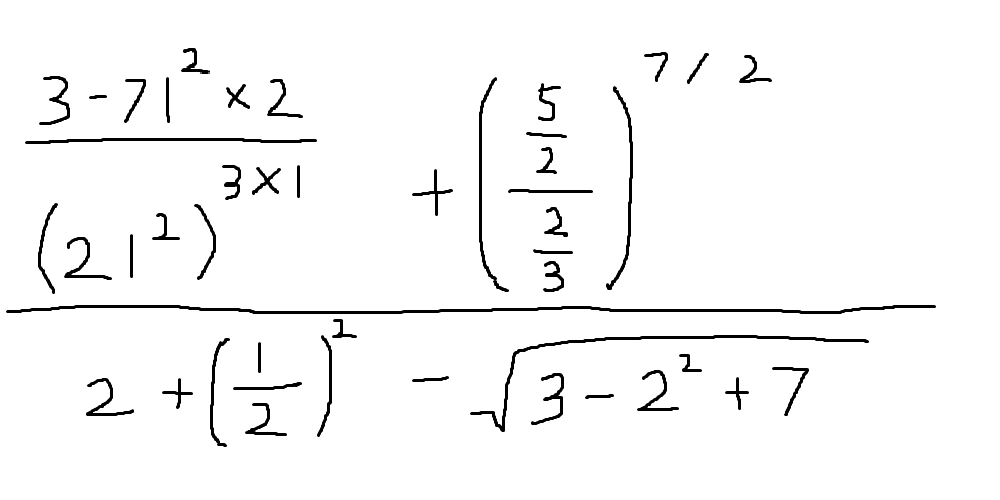 3 - 71² × 2
(21²)³ˣ¹ + ((5/2)/(2/3))^7/2
2 + (1/2)² - √(3 - 2² + 7)